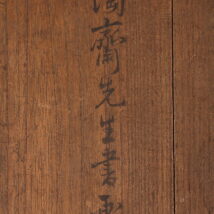 齋先生書